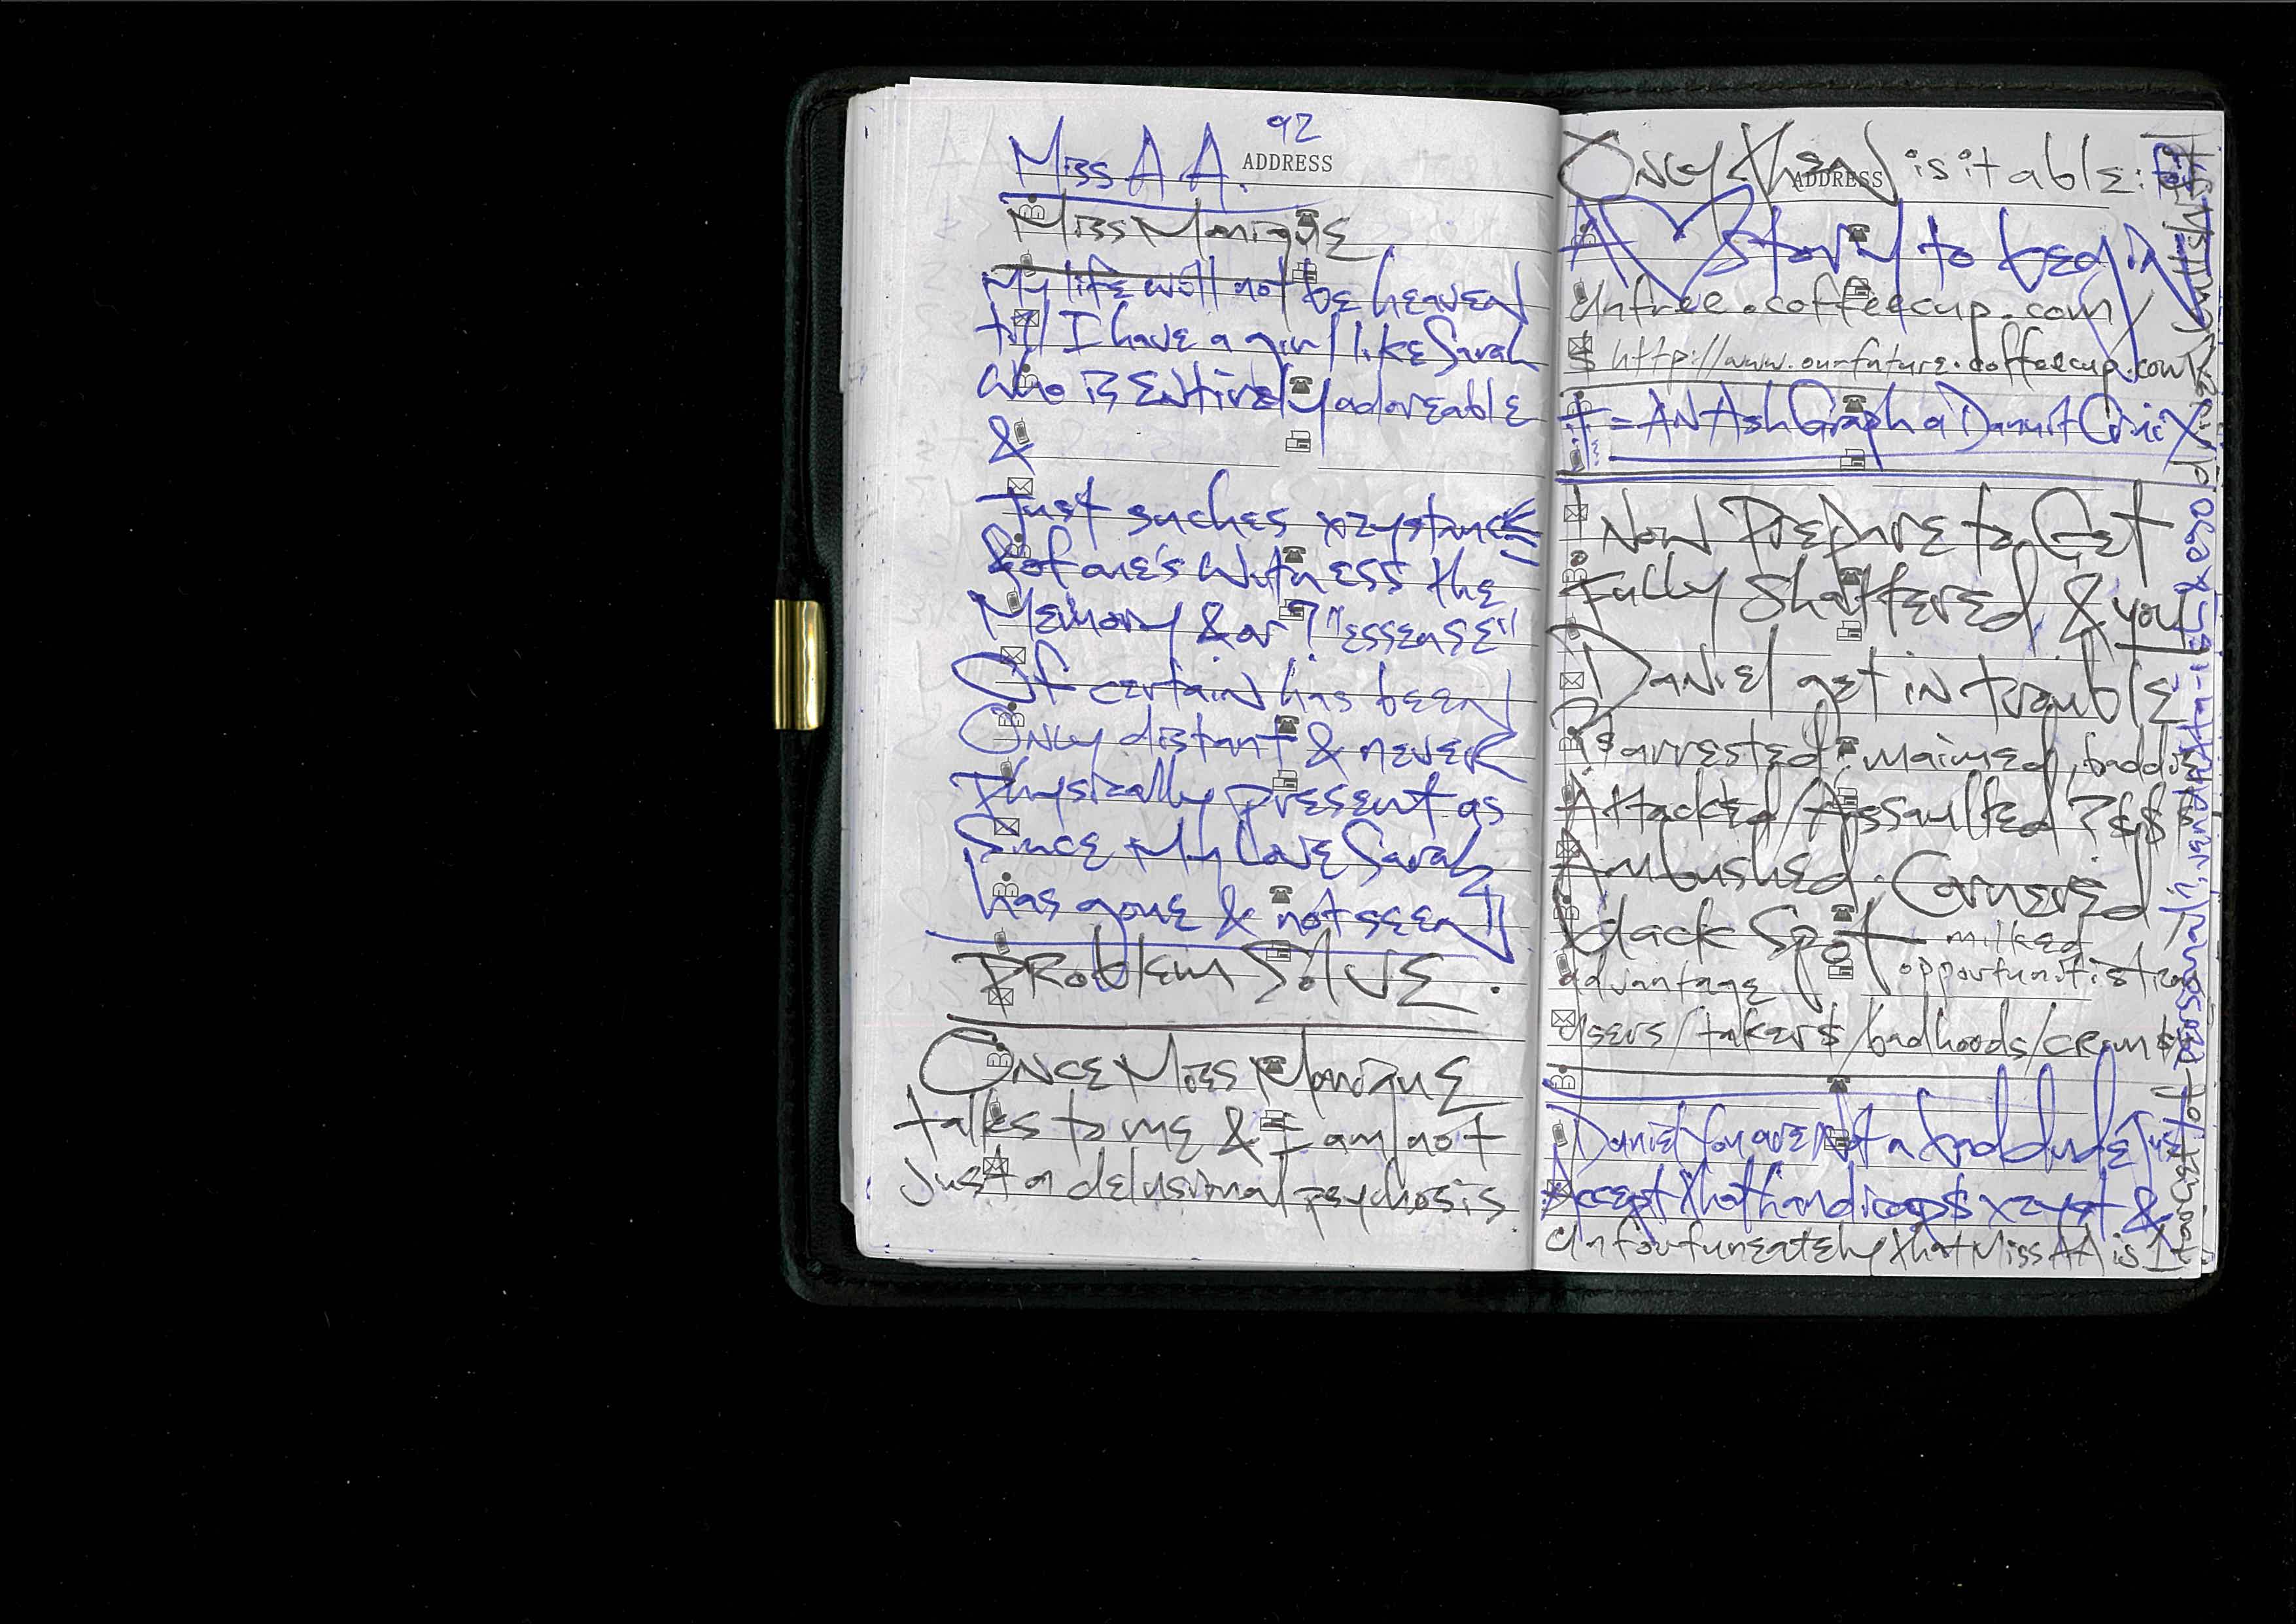 92
Miss A A.
ADDRESS
Miss Monique
My life will not be heaven
till I have a girl like Sarah
who is Entirely adoreable
&
Just suches xzystance
&of one's witness the
Memory & or ? "essense"
Of certain has been
Only distant & never
Physically present as
Since My Love Sarah
has gone & not seen
PRoblem SolvE.
Once Miss Monique
talks to me & I am not
Just a delusional psychosis
Only Xhen is it able:
ADDRESS
A story to begin
Unfree.coffeecup.com/
$ http://www.ourfuture.coffeecup.com
= AN Ash Graph a Danuit
Now Prepare to Get
Fully Shattered & you
Daniel get in trouble
arrested ? maimed, baddie
Attacked/Assaulted ?$$$
Ambushed. Cornered
Black Spot milked
advantage opportunistic
Users/taker$/badhoods/
Daniel You are Not a bad dude Just
Accept Xhat handicap$ xzyst &
Unfourtuneately Xhat Miss AA is 1